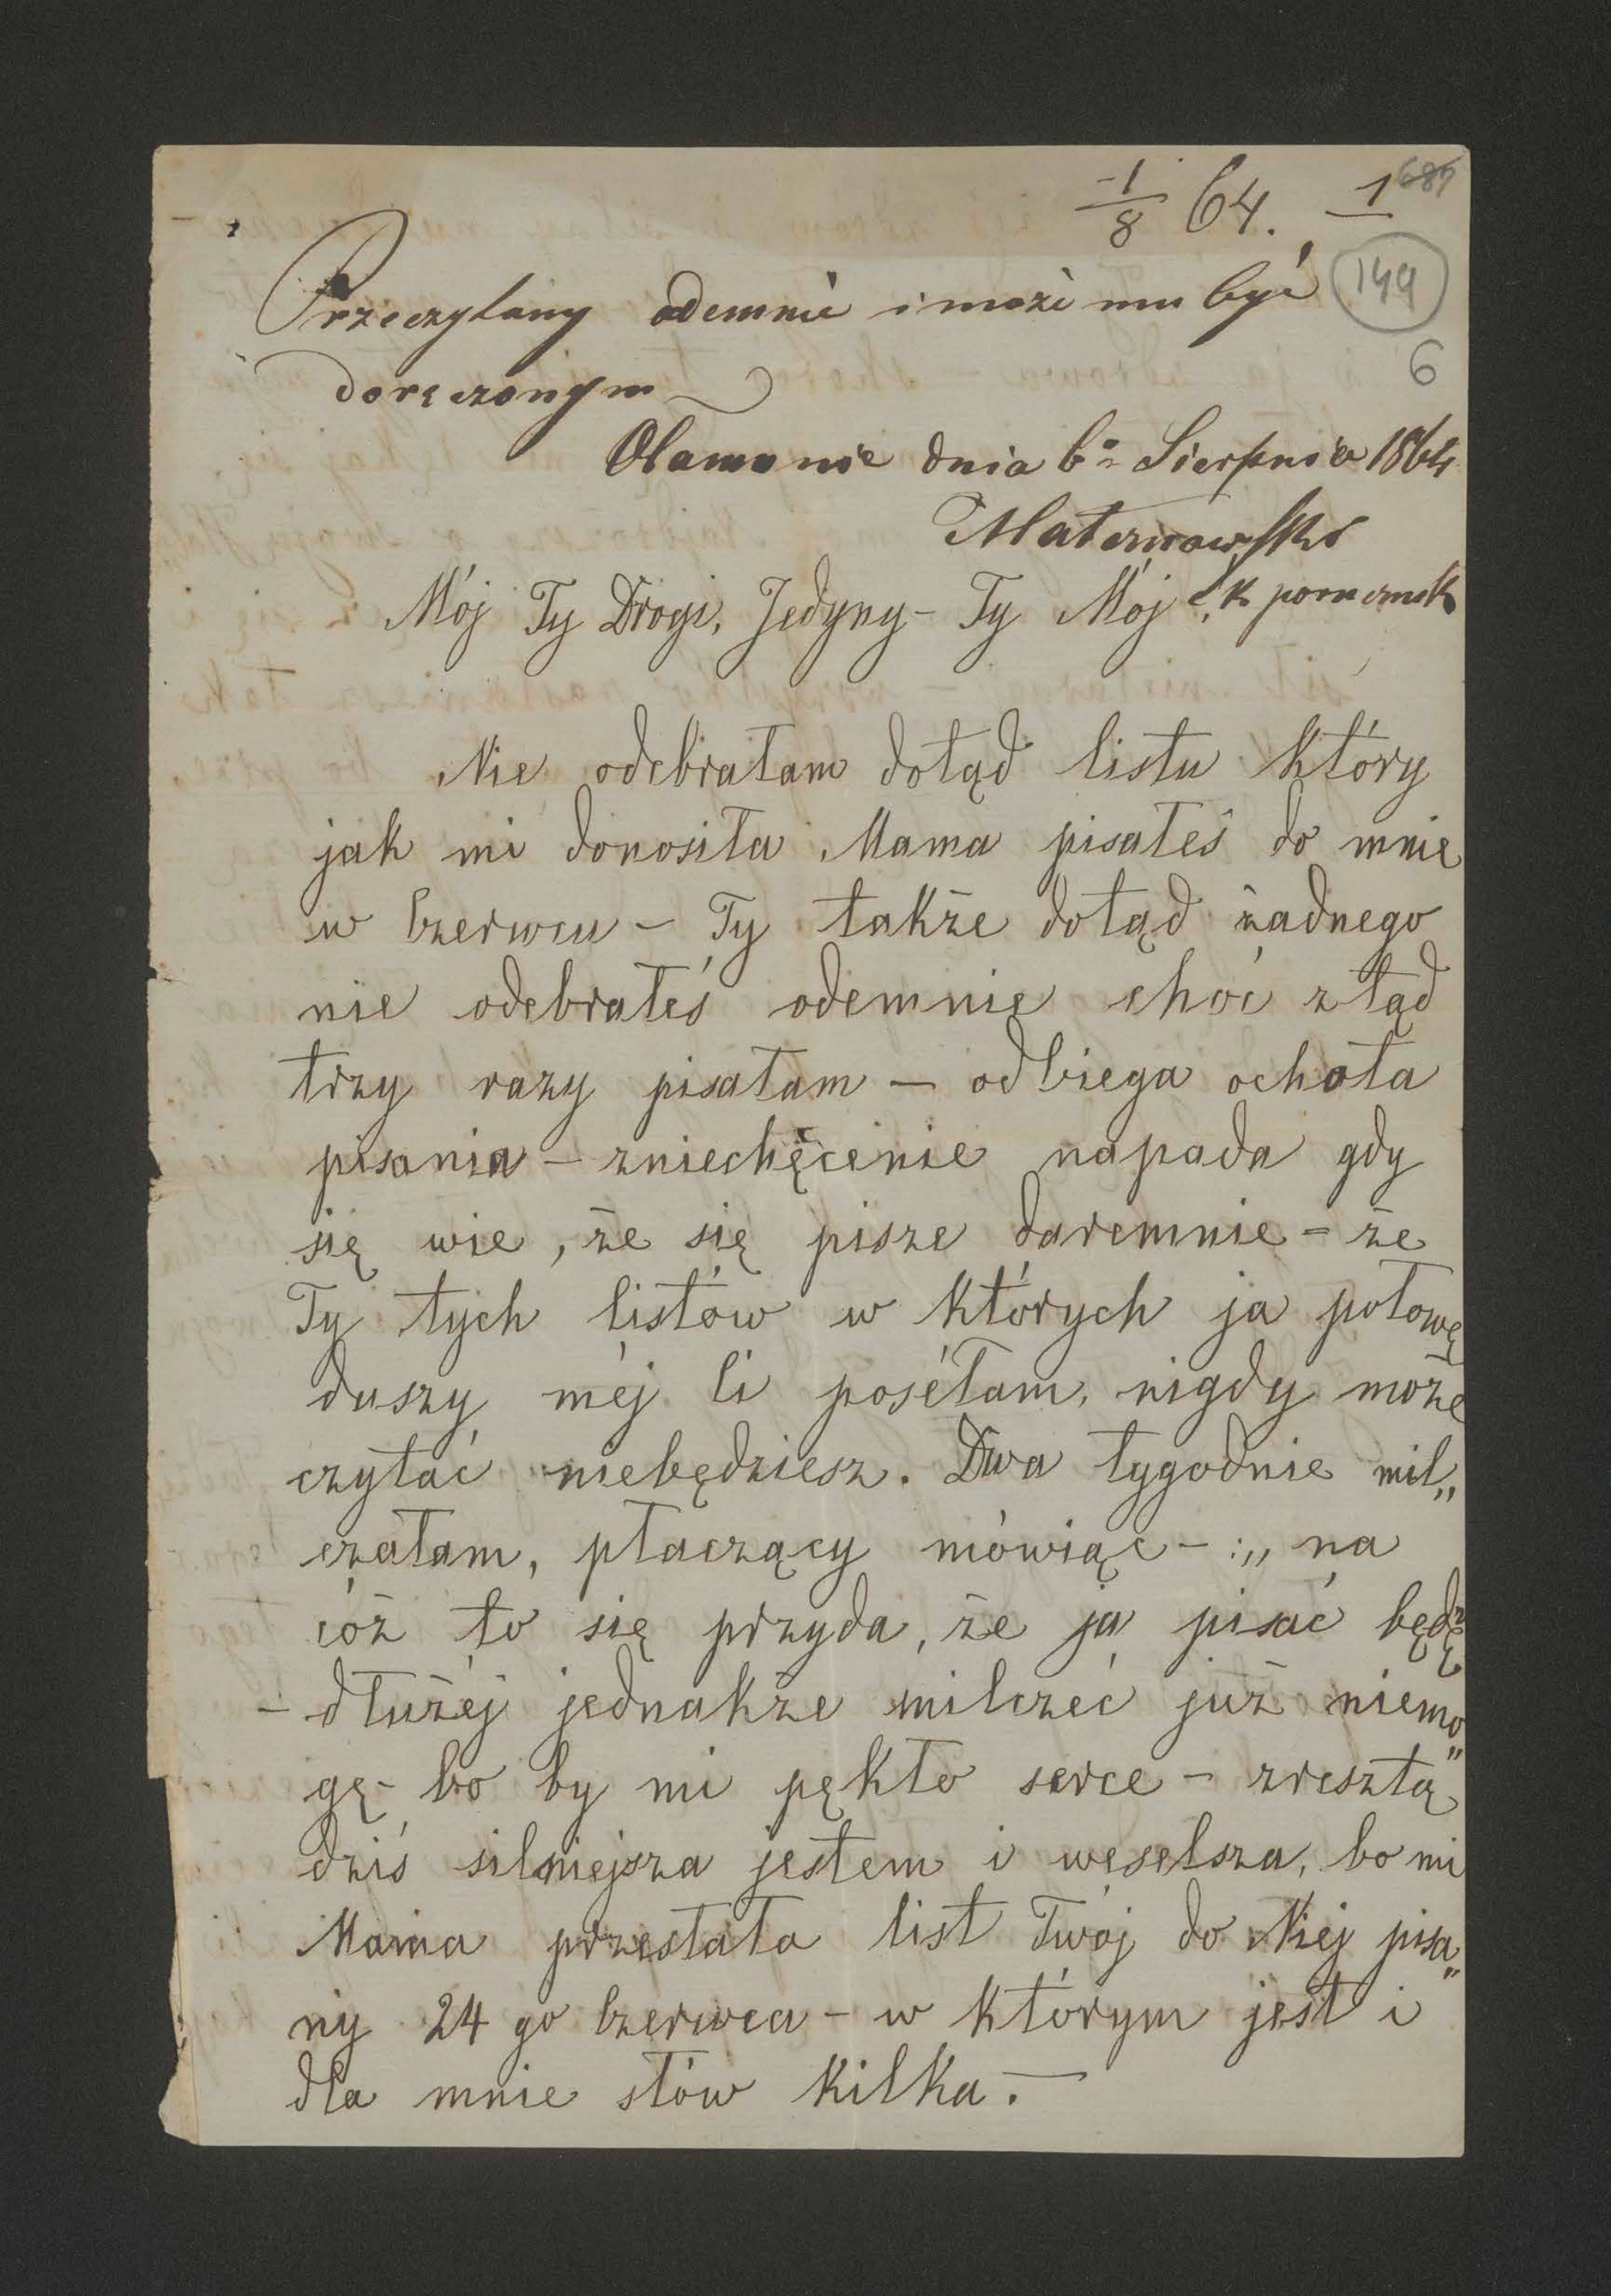 1/8 64. 1 687
Przeczytany odemnie i może mu być 149
doręczonym 6
Ołamunie dnia 6º Sierpnia 1864
Maternowski
Mój Ty Drogi, Jedyny – Ty Mój! k porucznik
Nie odebrałam dotąd listu który
jak mi donosiła Mama pisałeś do mnie
w Czerwcu – Ty także dotąd żadnego
nie odebrałeś odemnie choć ztąd
trzy razy pisałam – odbiega ochota
pisania – zniechęcenie napada gdy
się wie, że się pisze daremnie – że
Ty tych listów w których ja połowę
duszy méj Ci posełam, nigdy może
czytać niebędziesz. Dwa tygodnie mil„
czałam, płaczący mówiąc – :„ na
cóż to się przyda, że ja pisać będę
– dłużéj jednakże milczéć już niemo„
gę – bo by mi pękło serce – zresztą
dziś silniejsza jestem i weselsza, bo mi
Mama przesłała list Twój do Niej pisa„
ny 24 go Czerwca – w którym jest i
dla mnie słów kilka. –